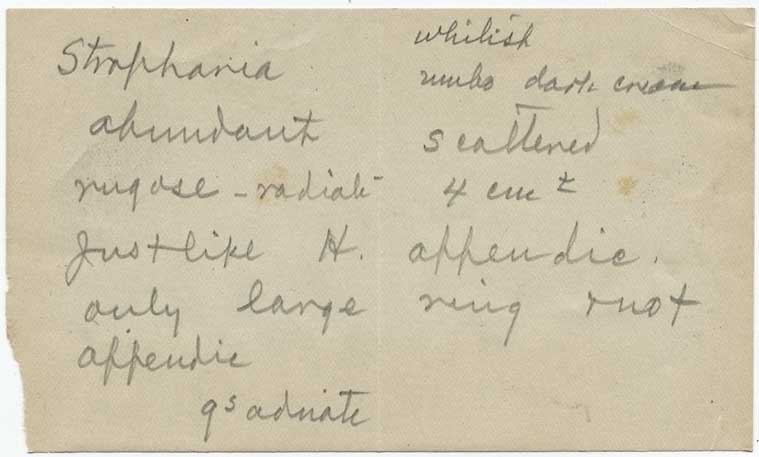 Stropharia
whitish
umbo dark cream
abundant scattered
rugose - radiate 4 cm ±
Just like H. appendic.
only large ring & not
appendic
gs adnate